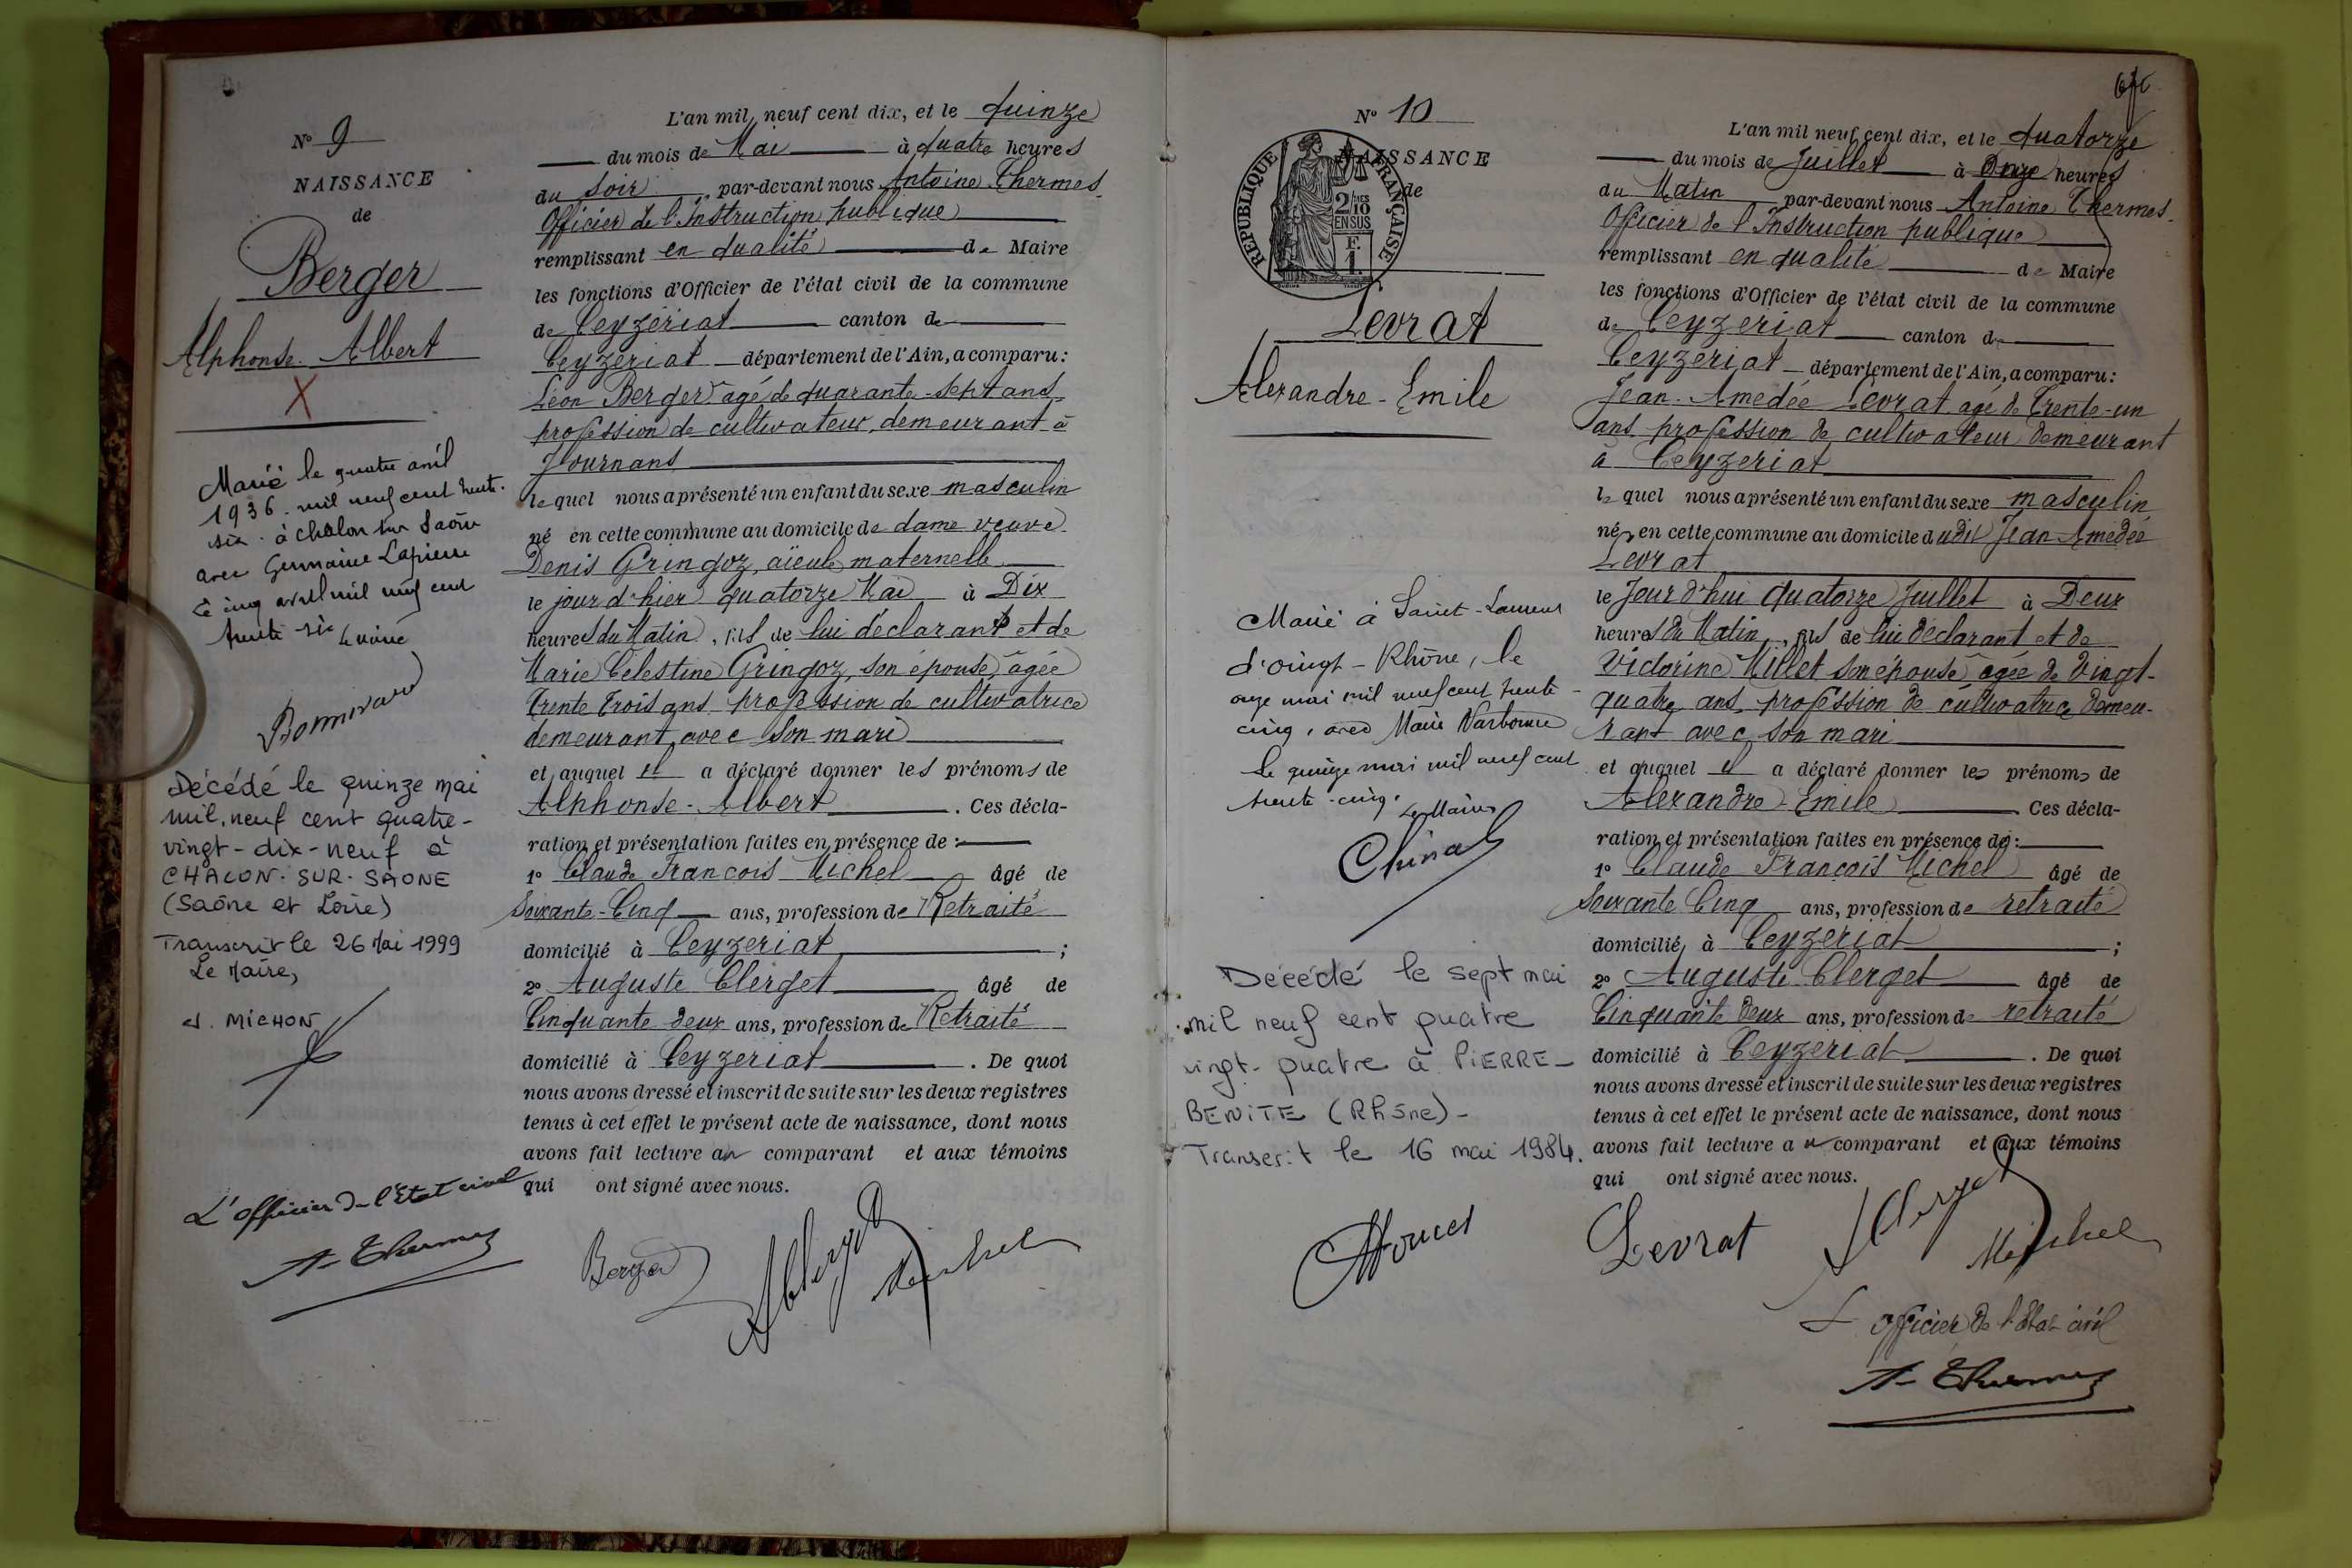 N° 9
NAISSANCE
de
Berger
Alphonse-Albert
X
Marié le quatre avril
1936. mil neuf cent trente-
six. à Chalon sur Saône
avec Germaine Lapierre
Le cinq avril mil neuf cent
trente-six Le maire
Décédé le quinze mai
mil. neuf cent quatre-
vingt-dix-neuf à
CHALON-SUR-SAONE
(Saône et Loire)
Transcrit le 26 Mai 1999
Le Maire,
J. MICHON
L'officier de l'Etat civil
A. Thermes
L'an mil neuf cent dix, et le quinze
du mois de Mai à quatre heures
du Soir par-devant nous Antoine Thermes
Officier de l'Instruction publique
remplissant en qualité de Maire
les fonctions d'Officier de l'état civil de la commune
de Ceyzeriat canton de
Ceyzeriat département de l'Ain, a comparu:
Léon Berger âgé de quarante-sept ans
profession de cultivateur, demeurant à
Journans
lequel nous a présenté un enfant du sexe masculin
né en cette commune au domicile de dame veuve
Denis Gringoz, aïeule maternelle
le jour d'hier quatorze Mai à Dix
heures du Matin, fils de lui déclarant et de
Marie Célestine Gringoz, son épouse, âgée
trente trois ans profession de cultivatrice
demeurant avec son mari
et auquel il a déclaré donner les prénoms de
Alphonse-Albert. Ces décla-
ration et présentation faites en présence de:
1° Claude François Michel âgé de
Soixante-Cinq ans, profession de Retraité
domicilié à Ceyzeriat;
2° Auguste Clerget âgé de
Cinquante deux ans, profession de Retraité
domicilié à Ceyzeriat. De quoi
nous avons dressé et inscrit de suite sur les deux registres
tenus à cet effet le présent acte de naissance, dont nous
avons fait lecture au comparant et aux témoins
qui ont signé avec nous.
Berger
A Clerget
Michel
N° 10
NAISSANCE
de
RÉPUBLIQUE FRANÇAISE
2/10
EN SUS
F.
1.
Levrat
Alexandre-Emile
Marié à Saint-Laurent
d'oingt-Rhône, le
onze mai mil neuf cent trente-
cinq, avec Marie Narbonne
le quinze mai mil neuf cent
trente-cinq.
Le Maire
Décédé le sept mai
mil neuf cent quatre
vingt-quatre à PIERRE-
BENITE (Rhône)-
Transcrit le 16 mai 1984.
L'an mil neuf cent dix, et le quatorze
du mois de Juillet à Onze heures
du Matin par-devant nous Antoine Thermes
Officier de l'Instruction publique
remplissant en qualité de Maire
les fonctions d'Officier de l'état civil de la commune
de Ceyzeriat canton de
Ceyzeriat département de l'Ain, a comparu:
Jean-Amédée Levrat agé de Trente-un
ans profession de cultivateur demeurant
à Ceyzeriat
lequel nous a présenté un enfant du sexe masculin
né en cette commune au domicile dudit Jean Amédée
Levrat
le Jour d'hui quatorze Juillet à Deux
heures du Matin, fils de lui déclarant et de
Victorine Millet son épouse âgée de Vingt-
quatre ans, profession de cultivatrice demeu-
rant avec son mari
et auquel il a déclaré donner les prénoms de
Alexandre-Emile Ces décla-
ration et présentation faites en présence de:
1° Claude François Michel âgé de
Soixante Cinq ans, profession de retraité
domicilié à Ceyzeriat;
2° Auguste Clerget âgé de
Cinquante Deux ans, profession de retraité
domicilié à Ceyzeriat. De quoi
nous avons dressé et inscrit de suite sur les deux registres
tenus à cet effet le présent acte de naissance, dont nous
avons fait lecture au comparant et aux témoins
qui ont signé avec nous.
Levrat
A Clerget
Michel
L'officier de l'Etat civil
A. Thermes